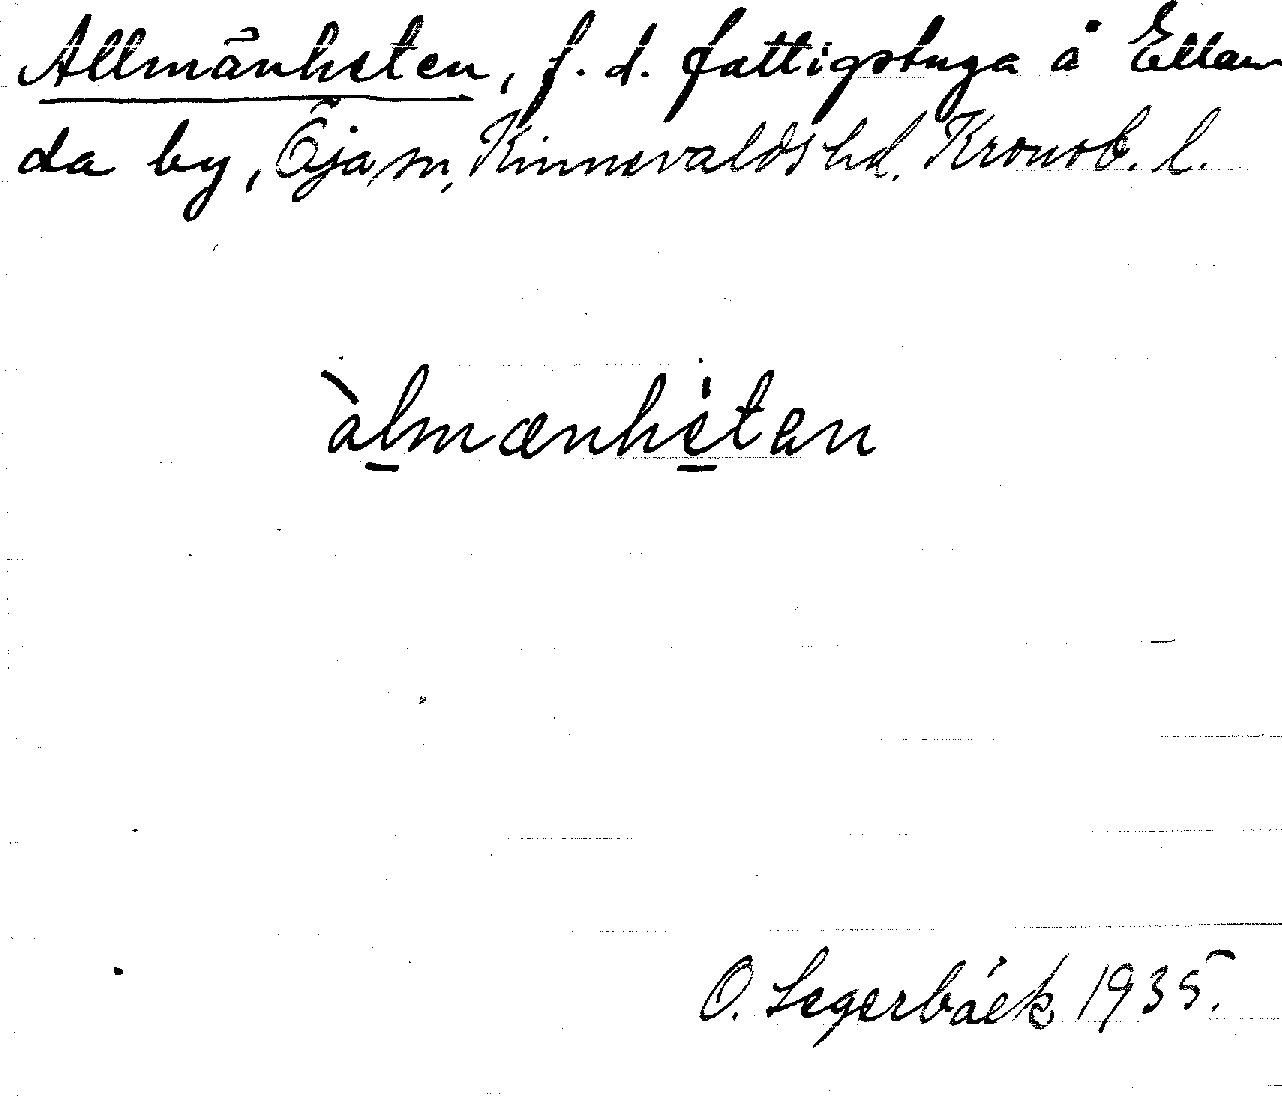 Allmänheten, f. d. fattigstuga å Ellan
da by, Öja sn, Kinnevalds hd. Kronob. l.
àlmænhetan
O. Segerbäck 1935.